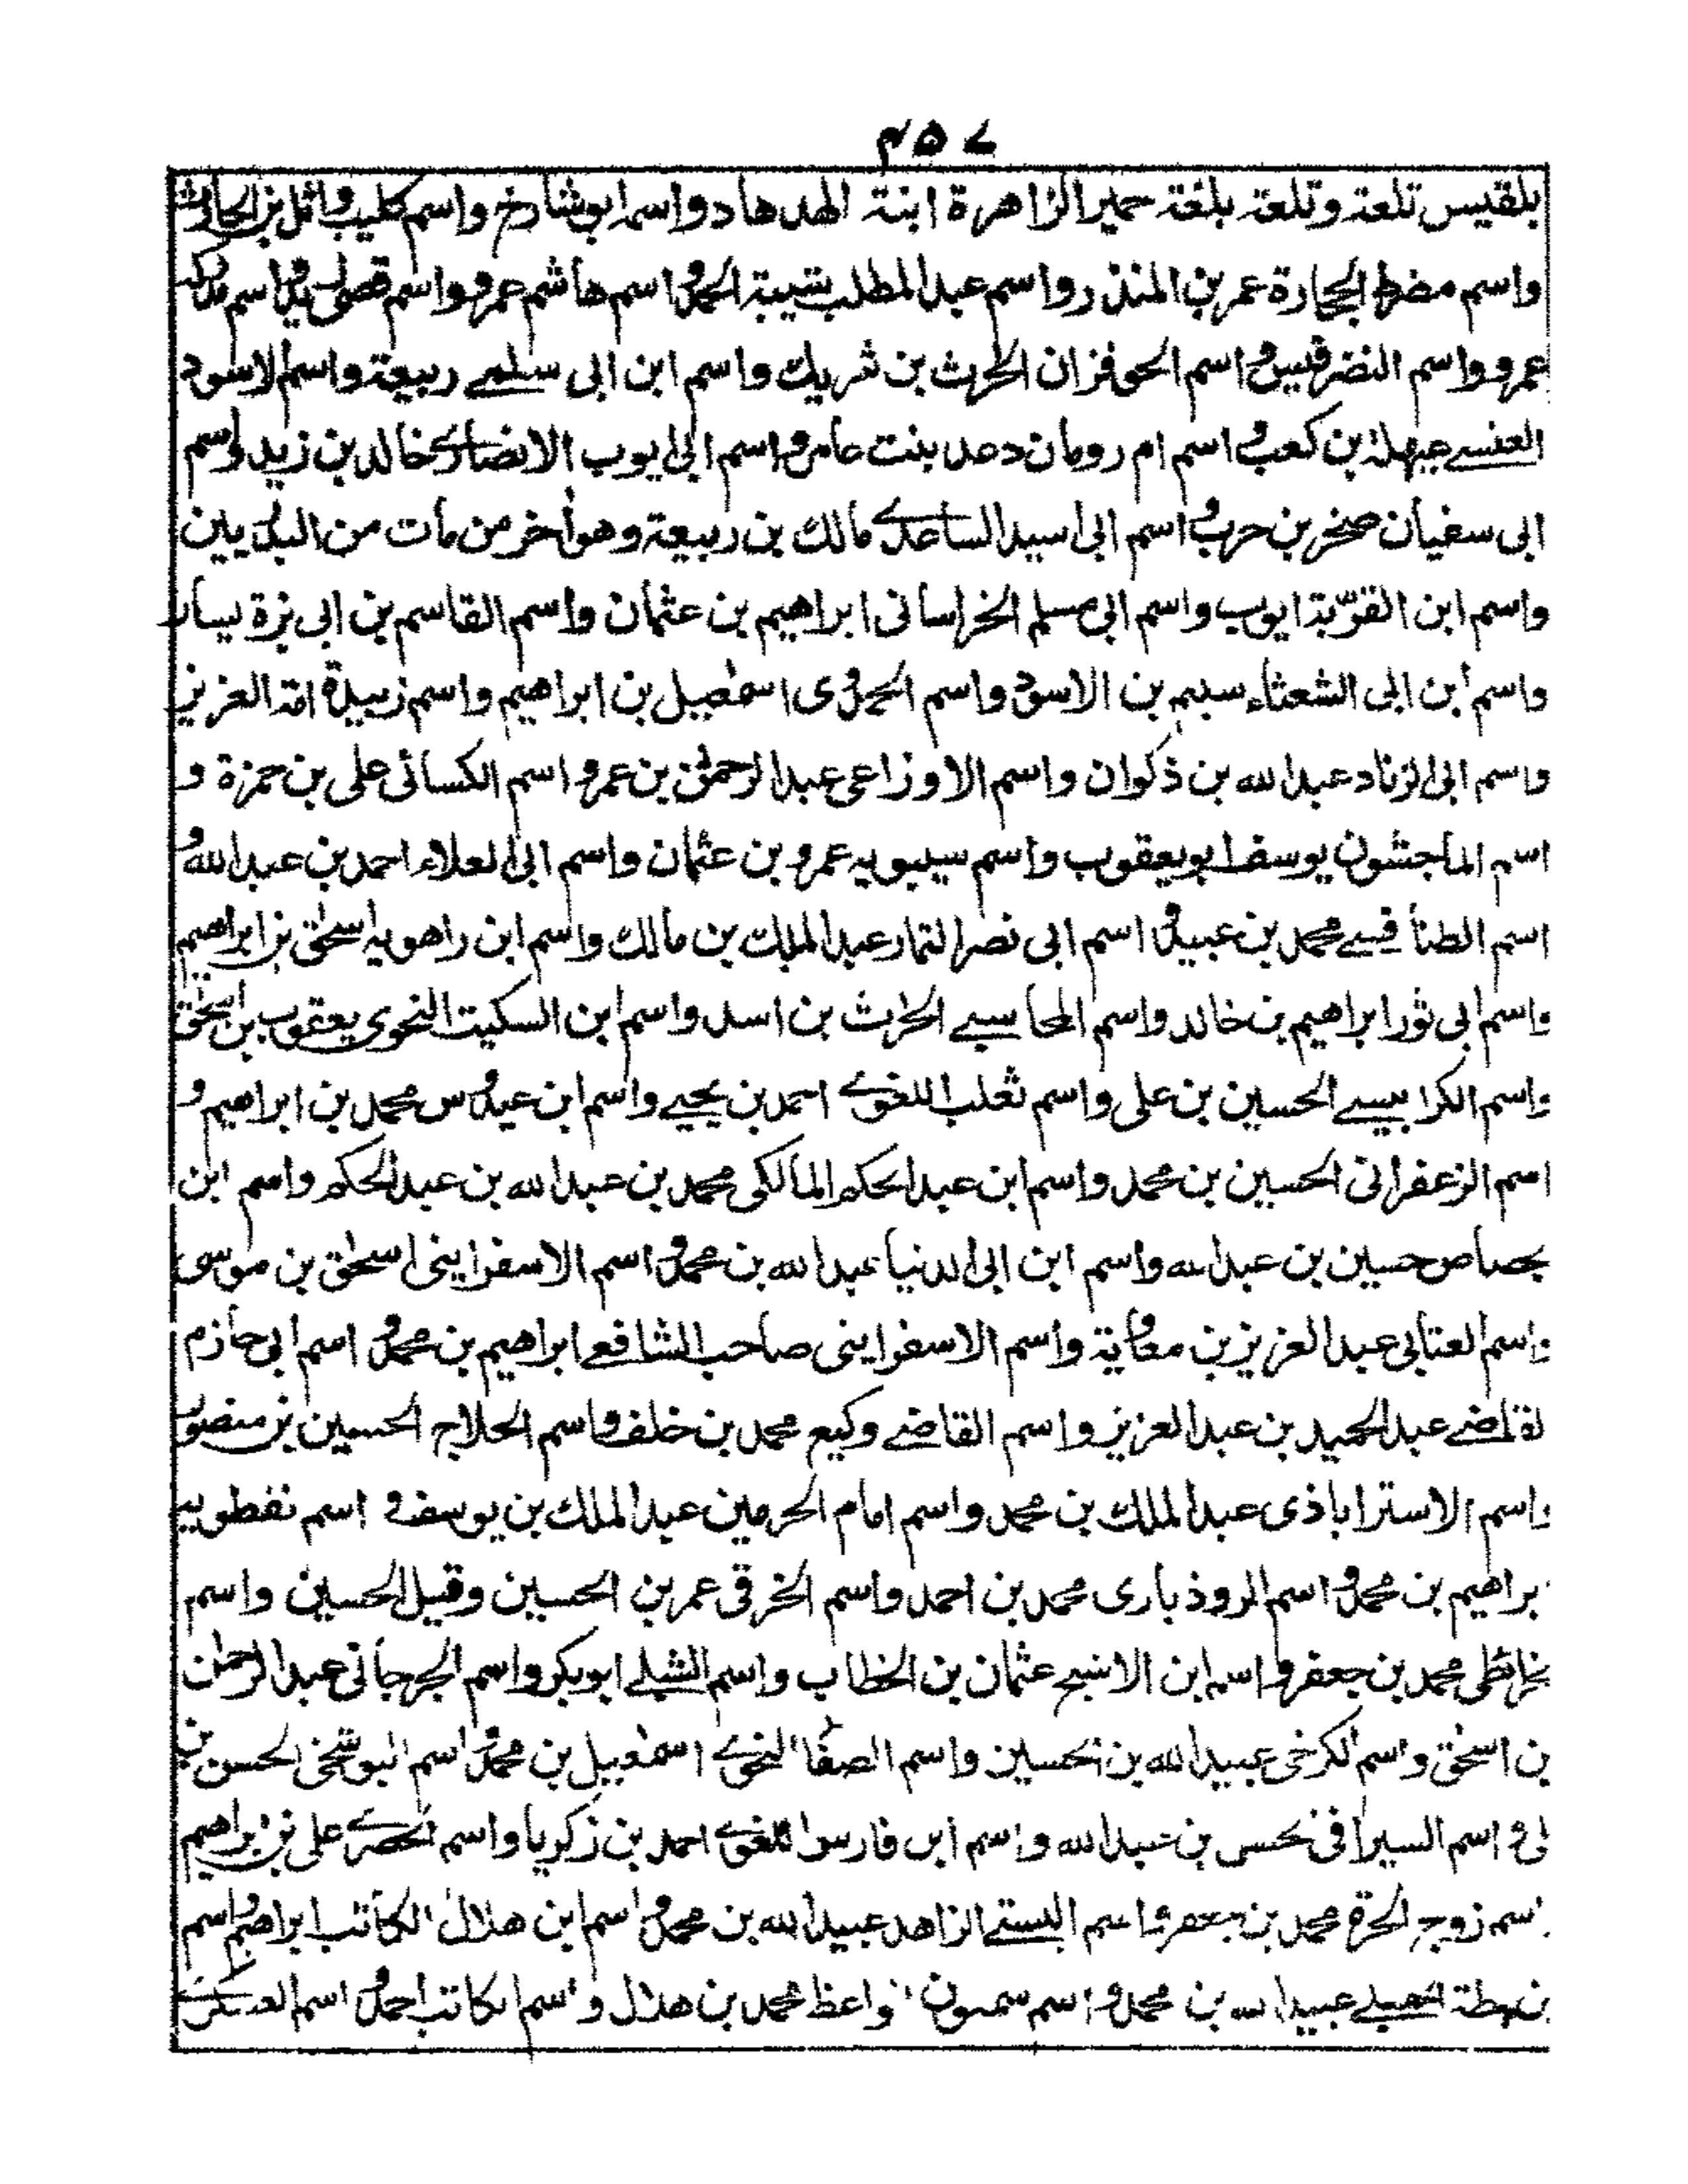 ٤٥٧
بلقيس تلعة وتلعة بلغة حمير الزاهرة ابنة الهدهاد واسم ابو شارخ واسم كليب وائل بن الحارث
واسم مضرط الحجارة عمر بن المنذر واسم عبد المطلب شيبة الحمد واسم هاشم عمرو واسم قصى زيد واسم مدركة
عمرو واسم النضر قيس واسم الحوفزان الحرث بن شريك واسم ابن ابى سلمى ربيعة واسم الاسود
العنسى عبهلة بن كعب واسم ام رومان دعد بنت عامر واسم ابى ايوب الانصارى خالد بن زيد واسم
ابى سفيان صخر بن حرب واسم ابى اسيد الساعدى مالك بن ربيعة وهو أخر من مات من البدريين
واسم ابن القرّية ايوب واسم ابى مسلم الخراسانى ابراهيم بن عثمان واسم القاسم بن ابى بزة يسار
واسم ابن ابى الشعثاء سليم بن الاسود واسم الحمدوى اسمٰعيل بن ابراهيم واسم زبيدة امة العزيز
واسم ابى الزناد عبد الله بن ذكوان واسم الاوزاعى عبد الرحمٰن بن عمرو اسم الكسائى على بن حمزة و
اسم الماجشون يوسف ابو يعقوب واسم سيبويه عمرو بن عثمان واسم ابى العلاء احمد بن عبد الله و
اسم الطنافسى محمد بن عبيد و اسم ابى نصر التمار عبد الملك بن مالك واسم ابن راهويه اسحٰق بن ابراهيم
واسم ابى ثور ابراهيم بن خالد واسم المحاسبى الحرث بن اسد واسم ابن السكيت النحوى يعقوب بن اسحٰق
واسم الكرابيسى الحسين بن على واسم ثعلب اللغوى احمد بن يحيى واسم ابن عبدوس محمد بن ابراهيم و
اسم الزعفرانى الحسين بن محمد واسم ابن عبد الحكم المالكى محمد بن عبد الله بن عبد الحكم واسم ابن
جصاص حسين بن عبد الله واسم ابن ابى الدنيا عبد الله بن محمد و اسم الاسفراينى اسحٰق بن موسى
واسم العتابى عبد العزيز بن معاوية واسم الاسفراينى صاحب الشافعى ابراهيم بن محمد و اسم ابى حازم
القاضى عبد الحميد بن عبد العزيز واسم القاضى وكيع محمد بن خلف واسم الحلاج الحسين بن منصور
واسم الاستراباذى عبد الملك بن محمد واسم امام الحرمين عبد الملك بن يوسف و اسم نفطويه
براهيم بن محمد و اسم الروذبارى محمد بن احمد واسم الخرقى عمر بن الحسين وقيل الحسين واسم
خرائطى محمد بن جعفر و اسم ابن الاشج عثمان بن الخطاب واسم الشبلى ابو بكر واسم الجرجانى عبد الرحمٰن
بن اسحٰق واسم الكرخى عبيد الله بن الحسين واسم الصفار النحوى اسمٰعيل بن محمد و اسم البوشنجى الحسن بن
اسم السيرافى الحسن بن عبد الله واسم ابن فارس اللغوى احمد بن زكريا واسم الحصرى على بن ابراهيم
اسم زوج الحرة محمد بن جعفر واسم البستى الزاهد عبيد الله بن محمد و اسم ابن هلال الكاتب ابراهيم واسم
بن بطة عبيد الله بن محمد و اسم سمعون الواعظ محمد بن هلال و اسم الكاتب احمد و اسم العسكرى